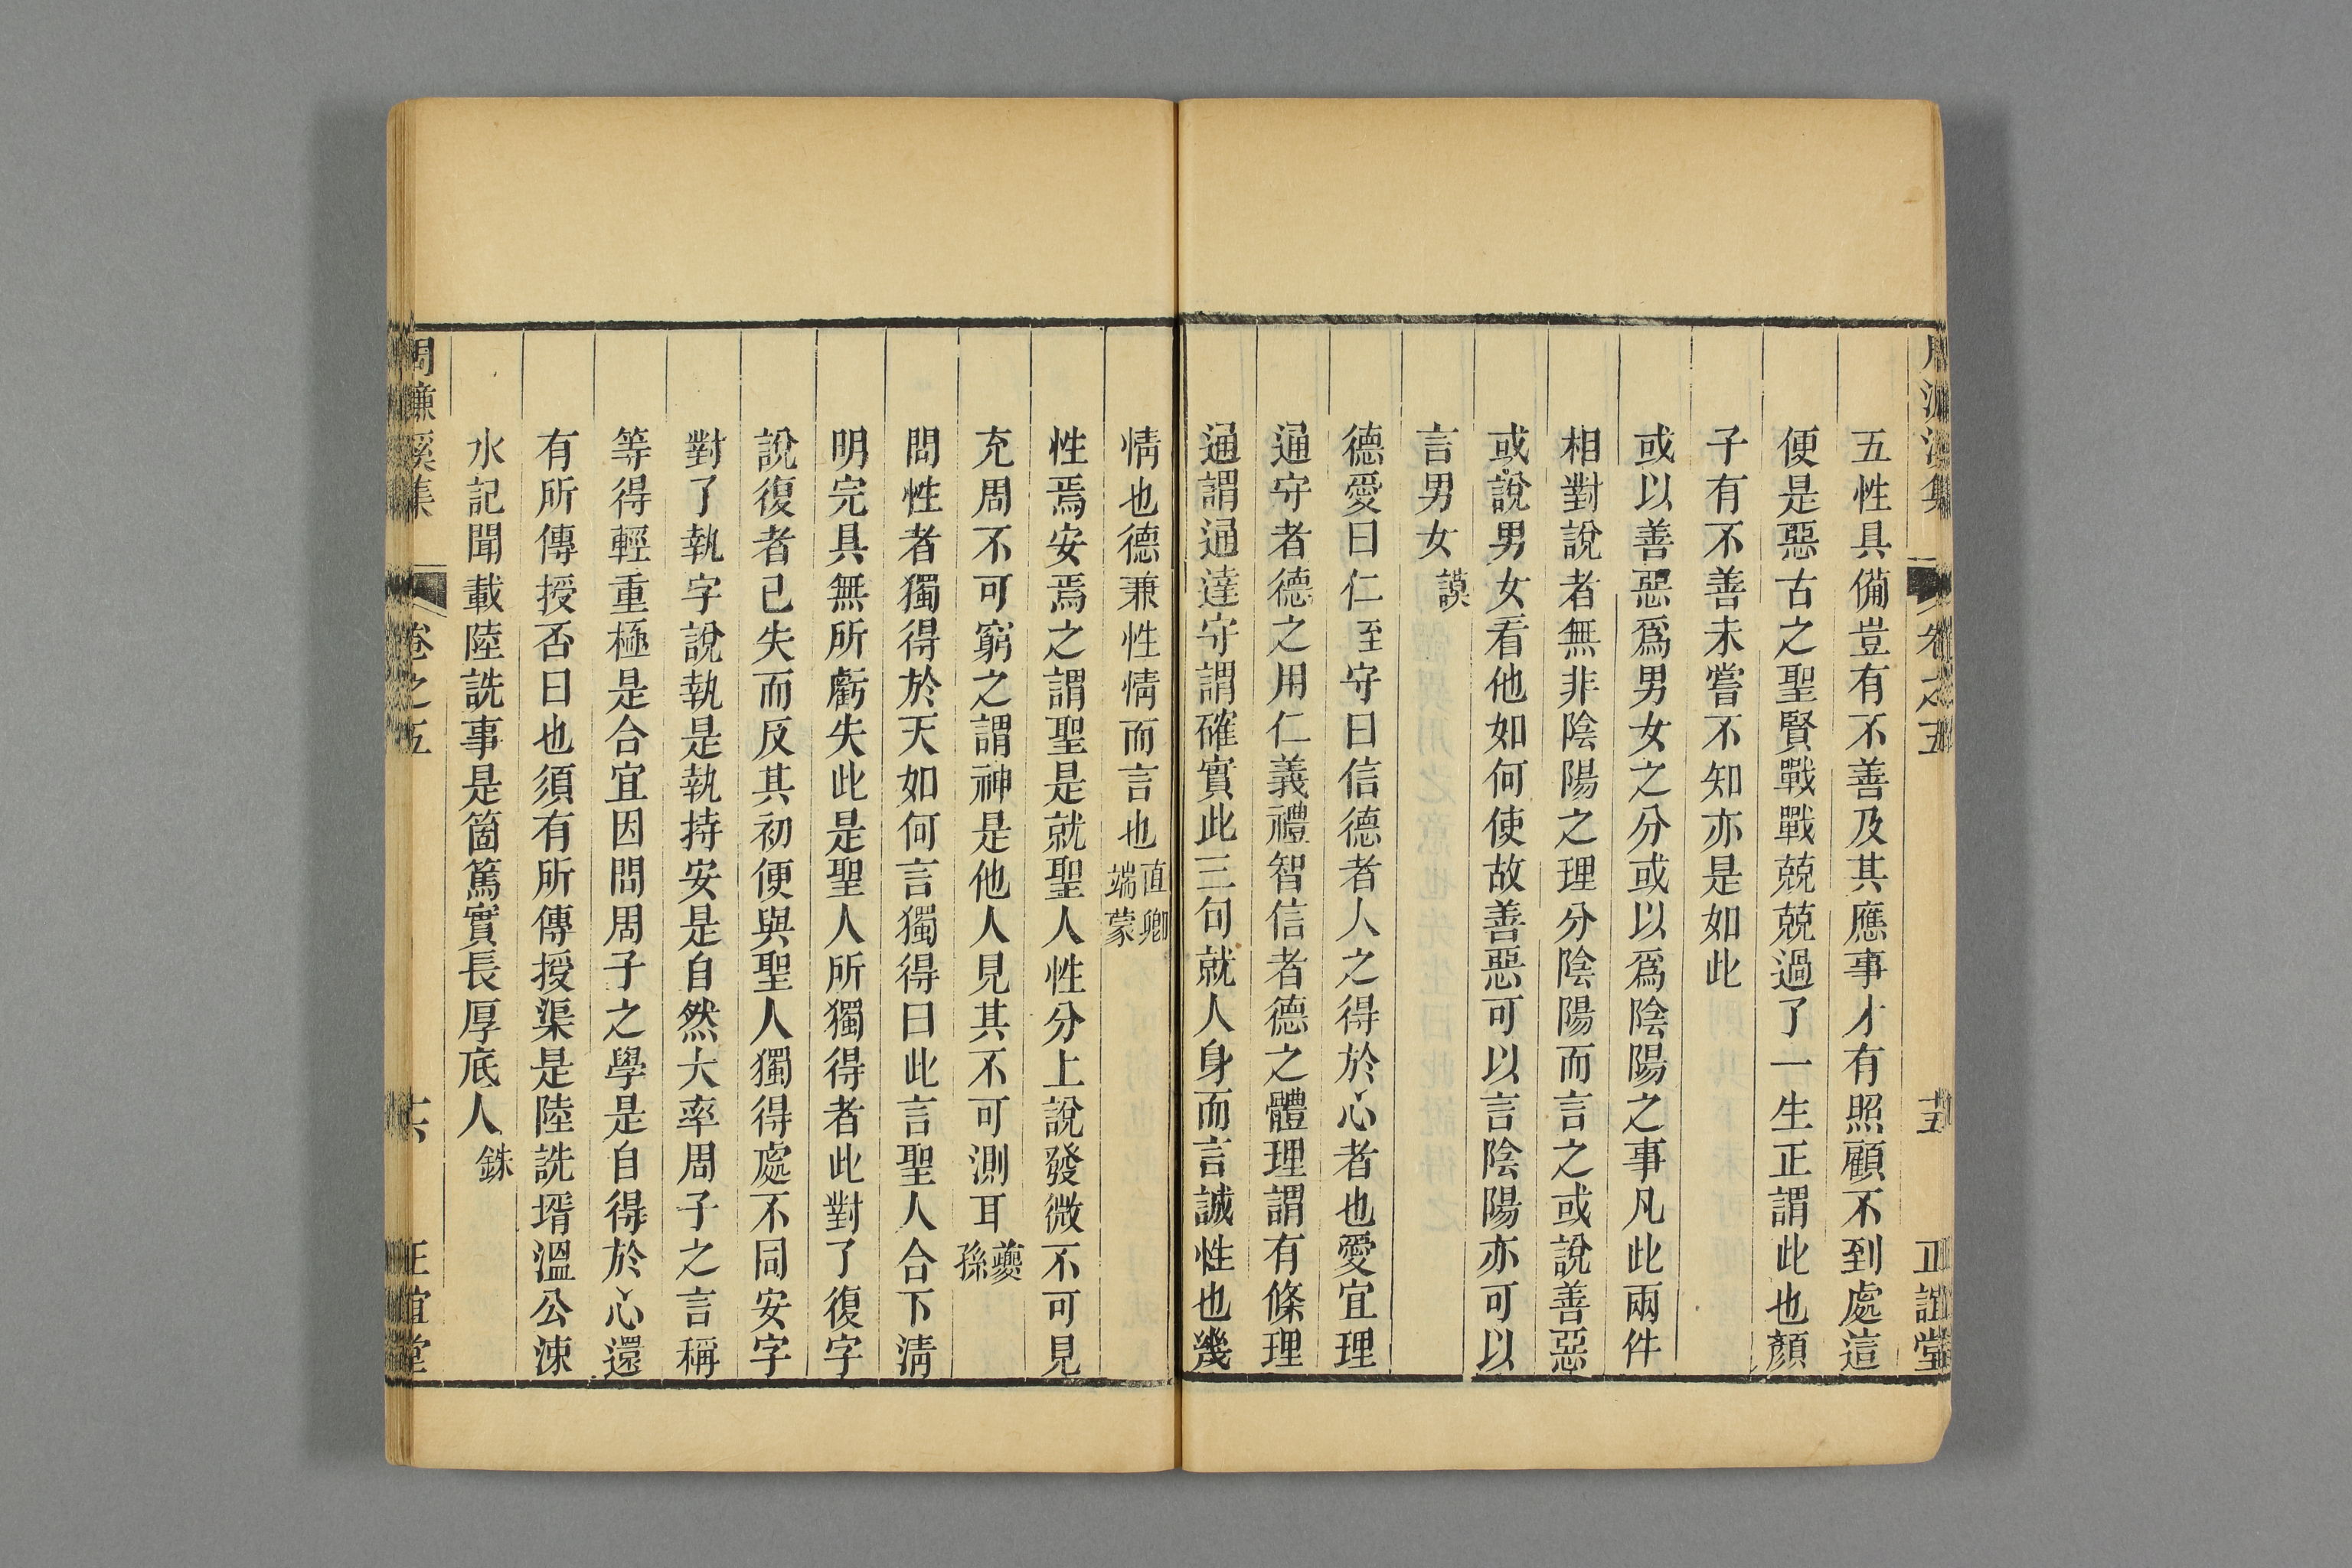 周濂溪集 卷之五 十五 正誼堂
五性具備豈有不善及其應事才有照顧不到處這
便是惡古之聖賢戰戰兢兢過了一生正謂此也顏
子有不善未嘗不知亦是如此
或以善惡爲男女之分或以爲陰陽之事凡此兩件
相對說者無非陰陽之理分陰陽而言之或說善惡
或說男女看他如何使故善惡可以言陰陽亦可以
言男女謨
德愛曰仁至守曰信德者人之得於心者也愛宜理
通守者德之用仁義禮智信者德之體理謂有條理
通謂通達守謂確實此三句就人身而言誠性也幾
情也德兼性情而言也直卿端蒙
性焉安焉之謂聖是就聖人性分上說發微不可見
充周不可窮之謂神是他人見其不可測耳夔孫
問性者獨得於天如何言獨得曰此言聖人合下清
明完具無所虧失此是聖人所獨得者此對了復字
說復者已失而反其初便與聖人獨得處不同安字
對了執字說執是執持安是自然大率周子之言稱
等得輕重極是合宜因問周子之學是自得於心還
有所傳授否曰也須有所傳授渠是陸詵壻溫公涑
水記聞載陸詵事是箇篤實長厚底人銖
周濂溪集 卷之五 十六 正誼堂